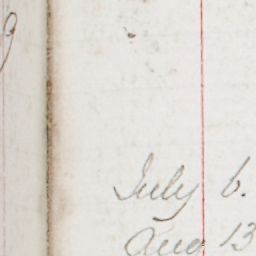 July 6.
Aug 13